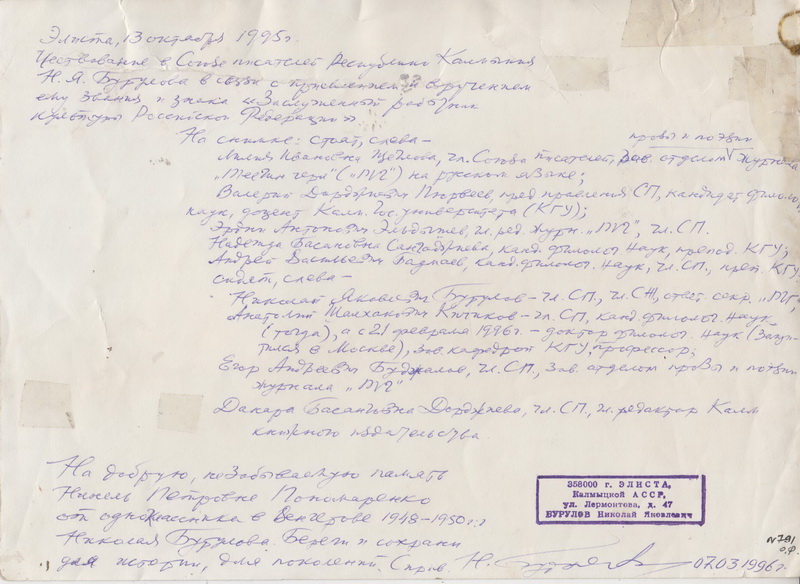 Элиста, 13 октября 1995 г.
Чествование в Союзе писателей Республики Калмыкия
Н. Я. Бурулова в связи с присвоением и вручением
ему звания и знака «Заслуженный работник
культуры Российской Федерации».
На снимке: стоят, слева –
прозы и поэзии
Лилия Ивановна Щеглова, чл. Союза писателей, зав. отделом журнала
„Теегин герл" („ТГ") на русском языке;
Валерий Дорджевич Пюрвеев, пред. правления СП, кандидат филолог.
наук, доцент Калм. Гос. университета (КГУ);
Эрдни Антонович Эльдышев, гл. ред. журн. „ТГ", чл. СП.
Надежда Басановна Санаджиева, канд. филолог. наук, препод. КГУ;
Андрей Васильевич Бадмаев, канд. филолог. наук, чл. СП, преп. КГУ
сидят, слева –
Николай Яковлевич Бурулов – чл. СП, чл. СЖ, ответ. секр. „ТГ",
Анатолий Шалхакович Кичиков – чл. СП, канд. филолог. наук
(тогда), а с 21 февраля 1996 г. – доктор филолог. наук (защи-
тился в Москве), зав. кафедрой КГУ, профессор;
Егор Андреевич Буджалов, чл. СП, зав. отделом прозы и поэзии
журнала „ТГ"
Данара Басанговна Дорджиева, чл. СП, гл. редактор Калм
книжного издательства.
На добрую, незабываемую память
Нинель Петровне Пономаренко
от одноклассника в Венгерове 1948–1950 г.г
Николая Бурулова. Береги и сохрани
для истории, для поколений. Н. Бурулов 07.03 1996 г.
358000 г. ЭЛИСТА,
Калмыцкой АССР,
ул. Лермонтова, д. 47
БУРУЛОВ Николай Яковлевич
№ 791
О.Ф.